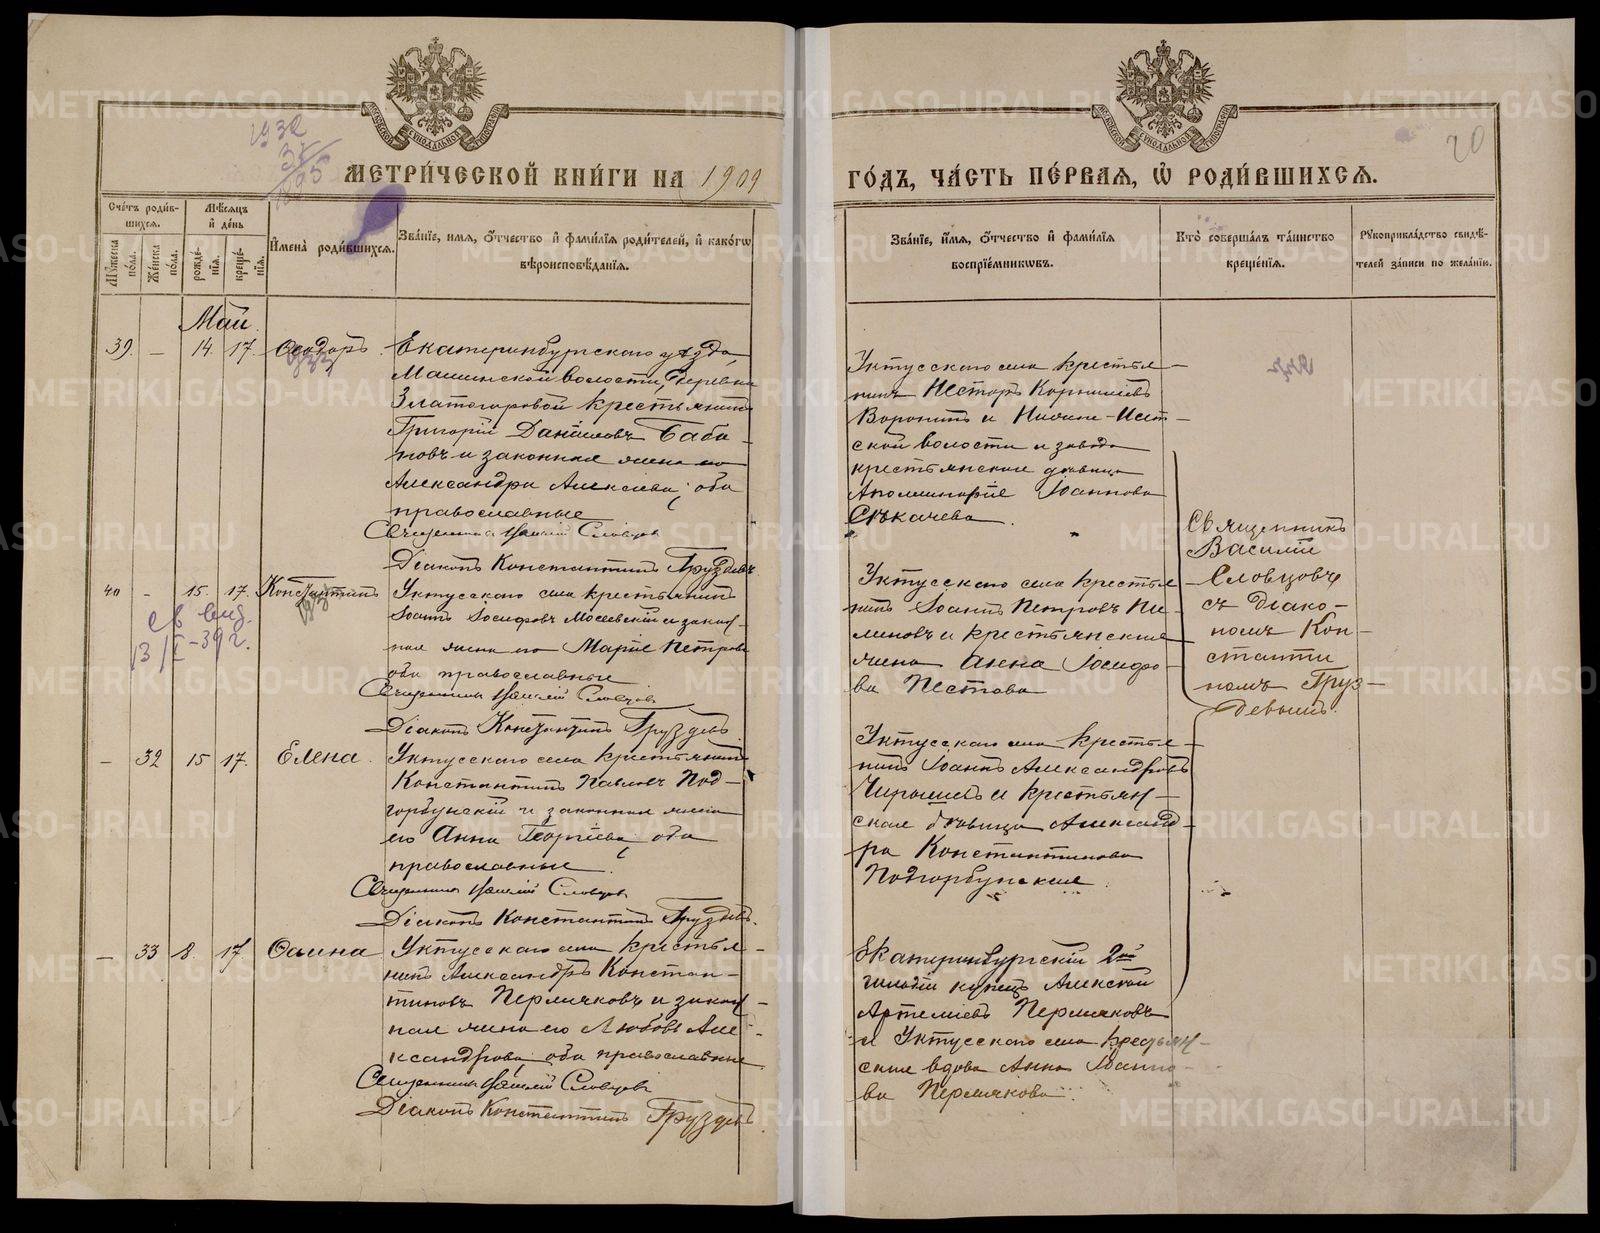 МЕТРИ́ЧЕСКОЙ КНИ́ГИ НА 1909
ГО́ДЪ, ЧА́СТЬ ПЕ́РВАЯ, Ѡ҆ РОДИ́ВШИХСѦ.
20
1932
Сче́тъ роди́в-
шихсѧ.
Мꙋ́жеска по́ла.
Же́нска по́ла.
Мѣ́сѧцъ и҆ де́нь
рожде́-нїѧ.
креще́-нїѧ.
И҆мена̀ роди́вшихсѧ.
Зва́нїе, имѧ, ѻ҆́тчество и҆ фами́лїѧ роди́телей, и҆ како́гѡ
вѣроисповѣ́данїѧ.
Зва́нїе, и҆́мѧ, ѻ҆́тчество и҆ фами́лїѧ
воспрїе́мникѡвъ.
Кто̀ соверша́лъ та́инство
креще́нїѧ.
Рꙋкоприкла́дство свидѣ́-
телей за́писи по жела́нїю.
Май.
39. — 14. 17. Ѳеодоръ.
Екатеринбургскаго уѣзда,
Маминской волости, деревни
Златогоровой крестьянинъ
Григорій Даніиловъ Баба-
новъ и законная жена его
Александра Алексіева; оба
православные
Священникъ Василій Словцовъ
Діаконъ Константинъ Груздевъ.
Уктусскаго села крестья-
нинъ Несторъ Корнилиевъ
Воронинъ и Нижне-Исет-
ской волости и завода
крестьянская дѣвица
Аполлинарія Іоаннова
Сѣкачева.
40 - 15. 17. Константинъ
Св выд.
13/I-39 г.
Уктусскаго села крестьянинъ
Іоаннъ Іосифовъ Мосеевскій и закон-
ная жена его Марія Петрова
оба православные
Священникъ Василій Словцовъ
Діаконъ Константинъ Груздевъ.
Уктусскаго села крестья-
нинъ Іоаннъ Петровъ Пи-
линовъ и крестьянская
жена Анна Іосифо-
ва Пестова
— 32 15 17. Елена.
Уктусскаго села крестьянинъ
Константинъ Павловъ Под-
горбунскій и законная жена
его Анна Георгіева; оба
православные.
Священникъ Василій Словцовъ
Діаконъ Константинъ Груздевъ.
Уктусскаго села крестья-
нинъ Іоаннъ Александровъ
и крестьян-
ская дѣвица Александ-
ра Константинова
Подгорбунская.
— 33 8. 17. Ѳаина
Уктусскаго села крестья-
нинъ Александръ Констан-
тиновъ Пермяковъ и закон-
ная жена его Любовь Але-
ксандрова; оба православные
Священникъ Василій Словцовъ
Діаконъ Константинъ Груздевъ.
Екатеринбургскій 2ой
гильдіи купецъ Алексій
Артеміевъ Пермяковъ
и Уктусскаго села крестьян-
ская вдова Анна Іоанно-
ва Пермякова.
Священникъ
Василій
Словцовъ
съ діако-
номъ Кон-
станти
номъ Груз-
девымъ.
METRIKI.GASO-URAL.RU